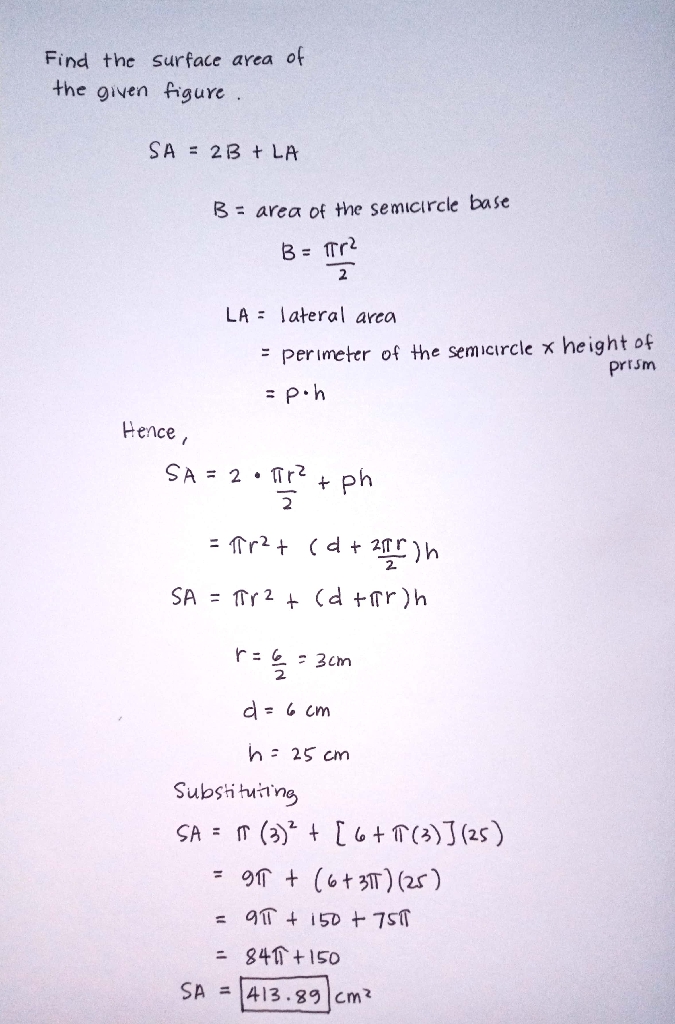 Find the surface area of
the given figure.
SA = 2B + LA
B = area of the semicircle base
B = πr²/2
LA = lateral area
= perimeter of the semicircle x height of prism
= p·h
Hence,
SA = 2 • πr²/2 + ph
= πr² + (d + 2πr/2)h
SA = πr² + (d + πr)h
r = 6/2 = 3cm
d = 6 cm
h = 25 cm
Substituting
SA = π(3)² + [6 + π(3)](25)
= 9π + (6 + 3π)(25)
= 9π + 150 + 75π
= 84π + 150
SA = 413.89 cm²